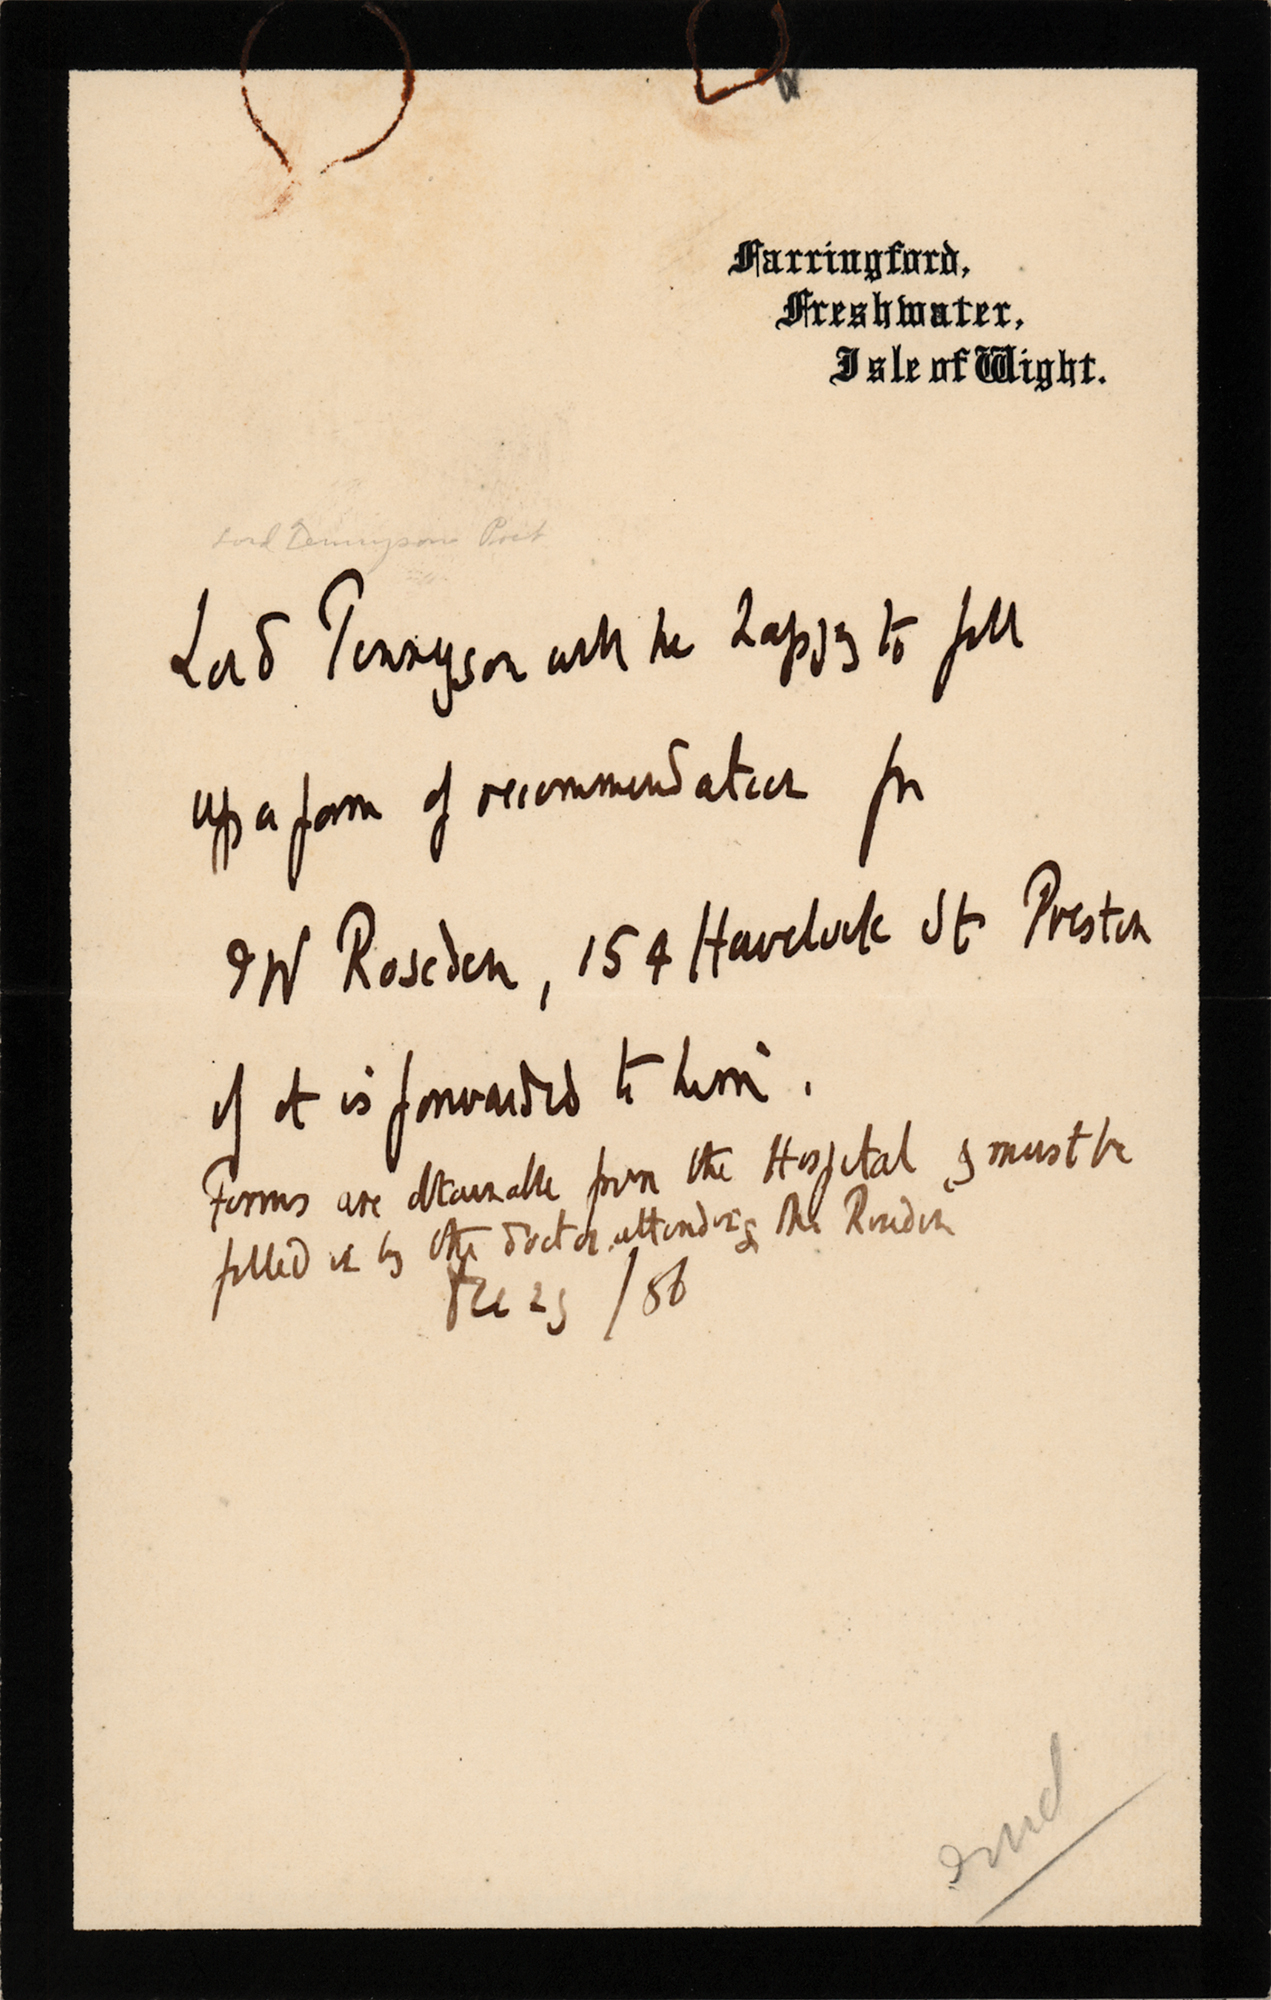 Farringford,
Freshwater,
Isle of Wight.
Lord Tennyson Poet
Lord Tennyson will be happy to fill
up a form of recommendation for
W Roseden, 154 Havelock St Preston
if it is forwarded to him.
Forms are obtainable from the Hospital & must be
filled in by the doctor attending
Dec 29 /86